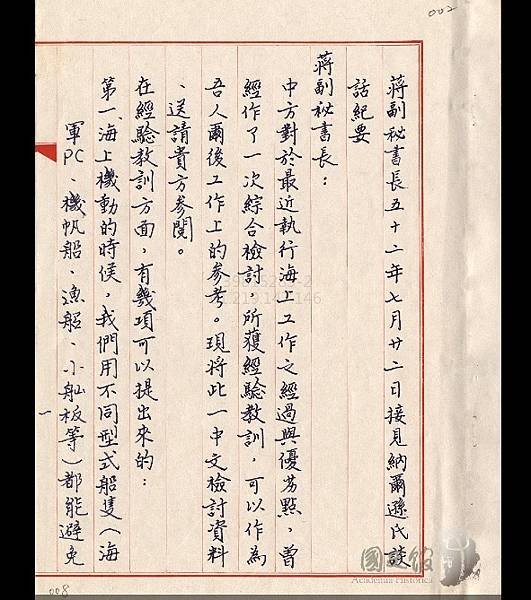 002
蔣副祕書長五十二年七月廿二日接見納爾遜氏談
話紀要
蔣副祕書長：
中方對於最近執行海上工作之經過與優劣點，曾
經作了一次綜合檢討，所獲經驗教訓，可以作為
吾人爾後工作上的參考。現將此一中文檢討資料
、送請貴方參閱。
在經驗教訓方面，有幾項可以提出來的：
第一、海上機動的時候，我們用不同型式船隻（海
軍PC、機帆船、漁船、小舢板等）都能避免
一
008
國史館
Academia Historica